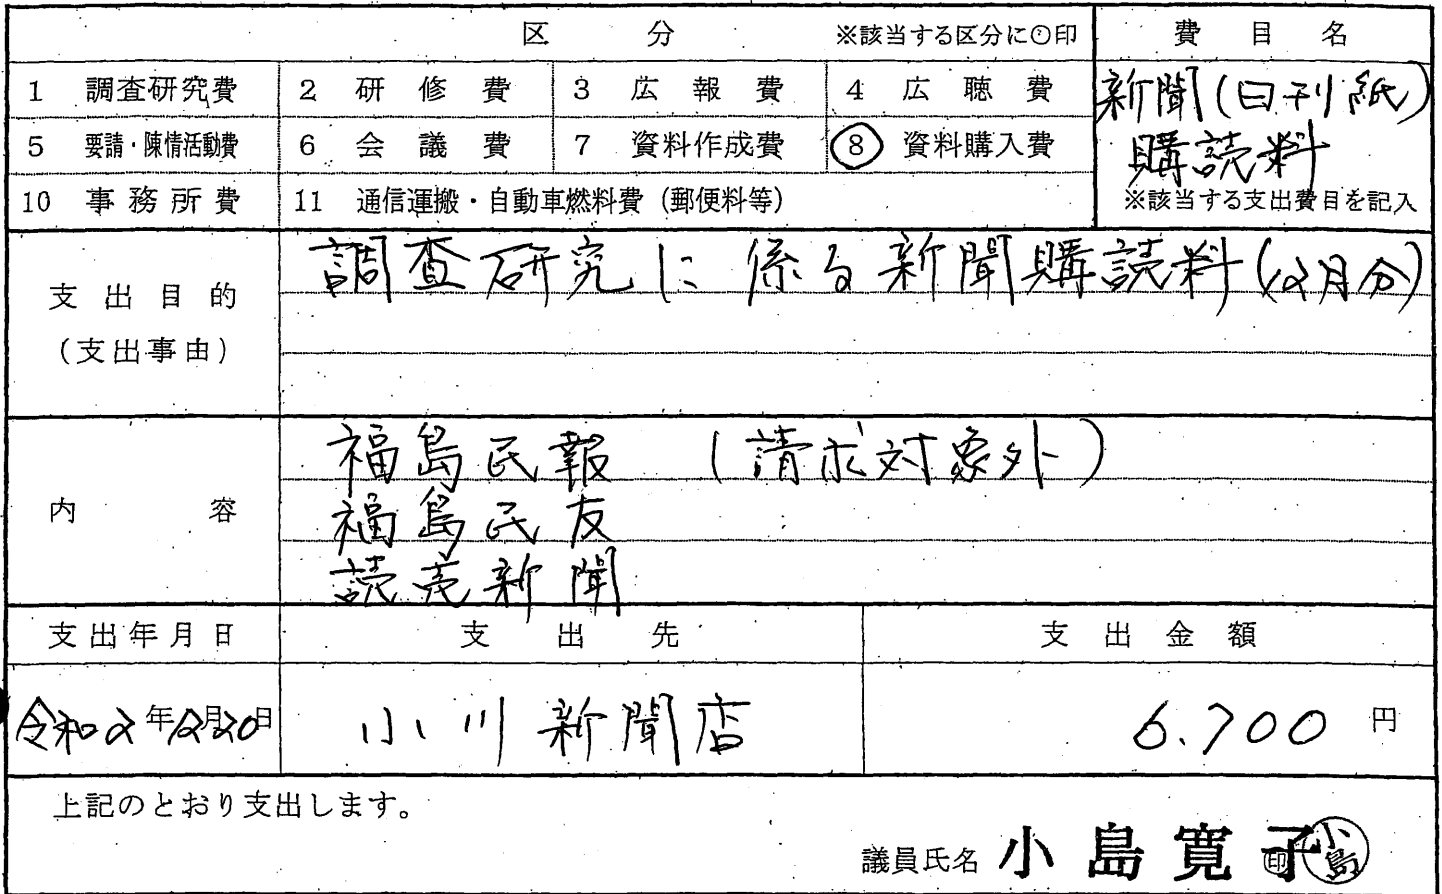 区 分 ※該当する区分に○印 費目名
1 調査研究費 2 研修費 3 広報費 4 広聴費 新聞(日刊紙)
5 要請・陳情活動費 6 会議費 7 資料作成費 ⑧ 資料購入費 購読料
10 事務所費 11 通信運搬・自動車燃料費(郵便料等) ※該当する支出費目を記入
支出目的 調査研究に係る新聞購読料(12月分)
(支出事由)
福島民報 (請求対象外)
内容 福島民友
読売新聞
支出年月日 支出先 支出金額
令和2年12月20日 小川新聞店 6.700 円
上記のとおり支出します。
議員氏名 小島寛子 印 小島